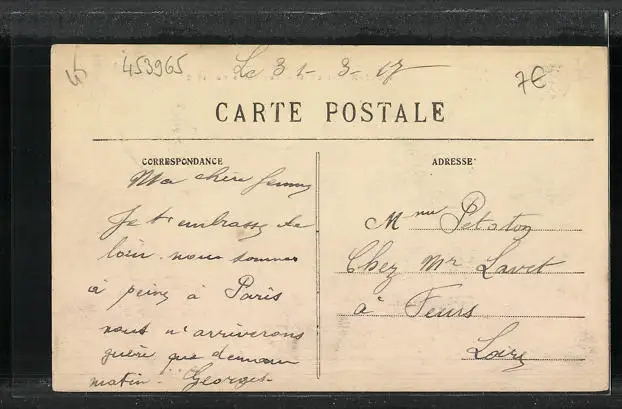 45
453965
Le 31-3-17
7€
CARTE POSTALE
CORRESPONDANCE
Ma chère
Je t'embrasse de
loin. nous sommes
à peine à Paris
nous n'arriverons
guère que demain
matin. Georges
ADRESSE
Mme
Chez Mr Lavet
à Feurs
Loire